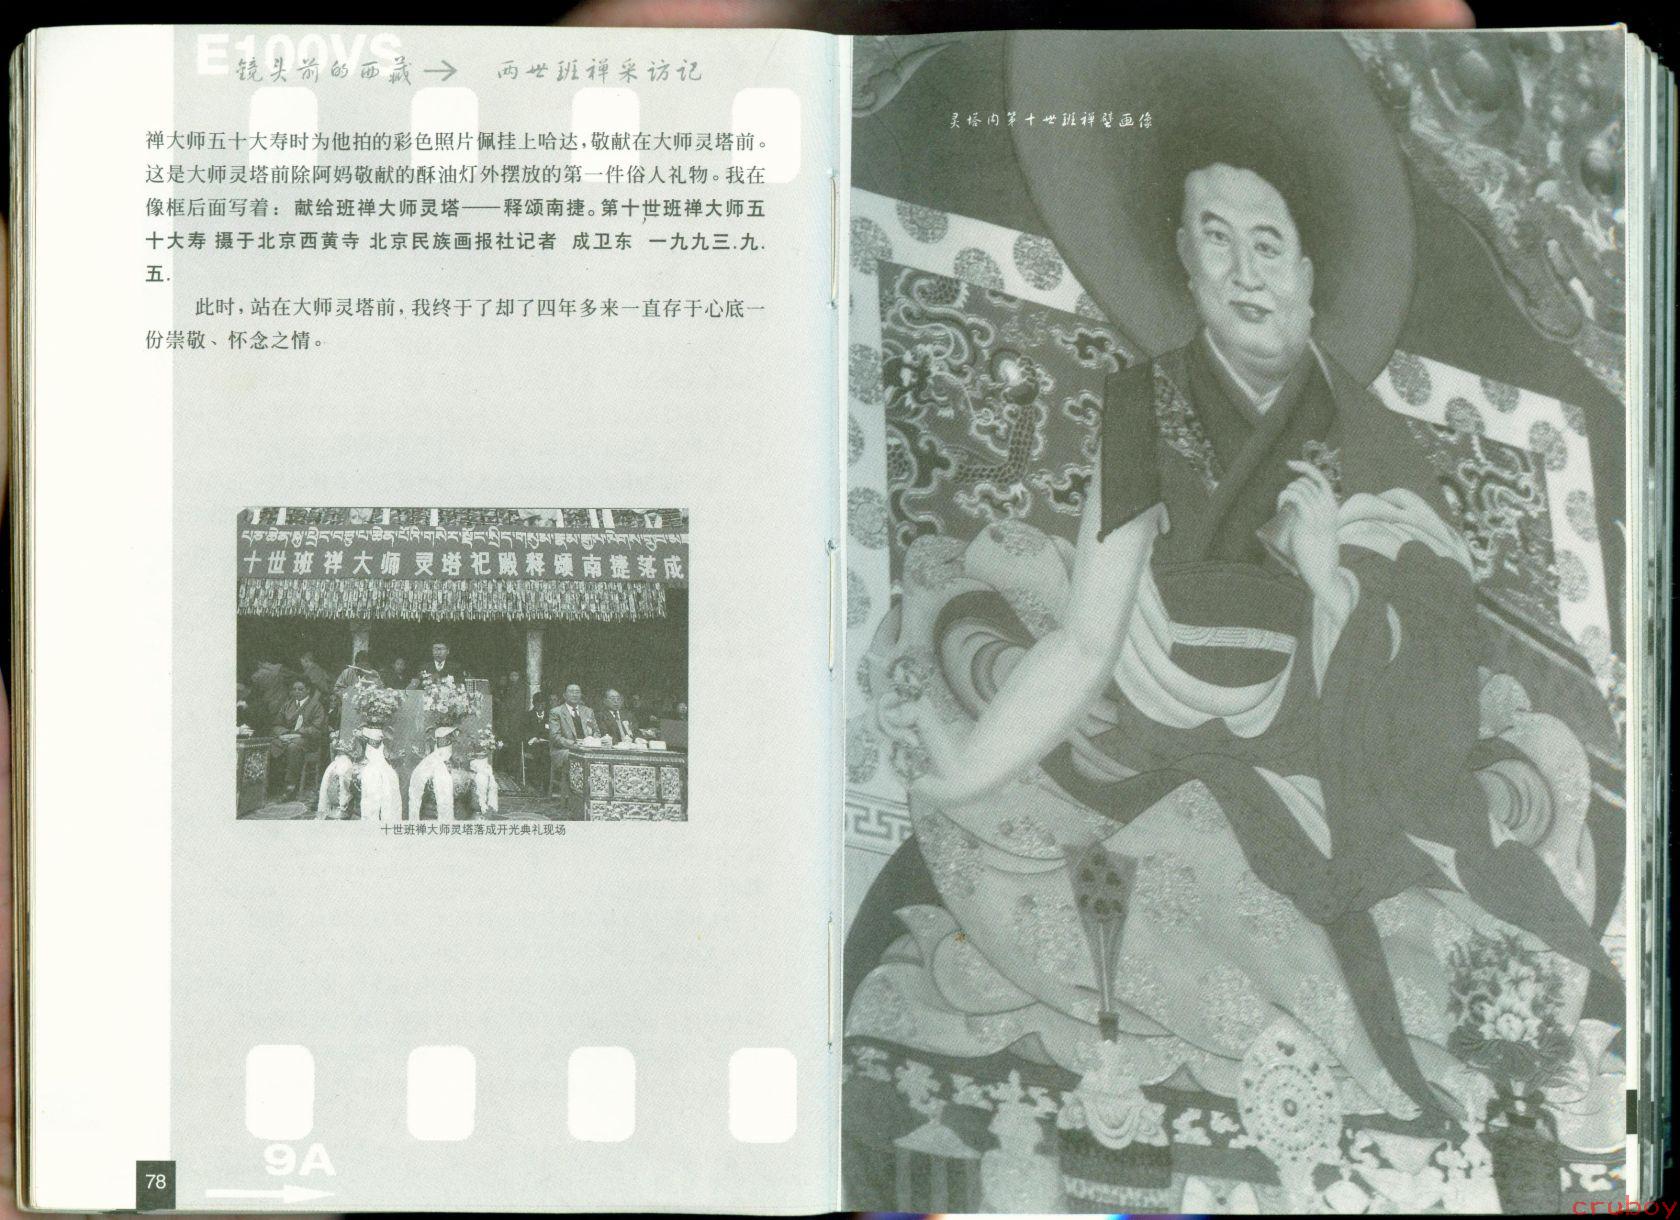 E100VS
镜头前的西藏→ 两世班禅采访记
禅大师五十大寿时为他拍的彩色照片佩挂上哈达,敬献在大师灵塔前。
这是大师灵塔前除阿妈敬献的酥油灯外摆放的第一件俗人礼物。我在
像框后面写着：献给班禅大师灵塔——释颂南捷。第十世班禅大师五
十大寿 摄于北京西黄寺 北京民族画报社记者 成卫东 一九九三.九.
五.
此时,站在大师灵塔前,我终于了却了四年多来一直存于心底一
份崇敬、怀念之情。
十世班禅大师灵塔祀殿释颂南捷落成
十世班禅大师灵塔落成开光典礼现场
9A
78
灵塔内第十世班禅壁画像
cruboy